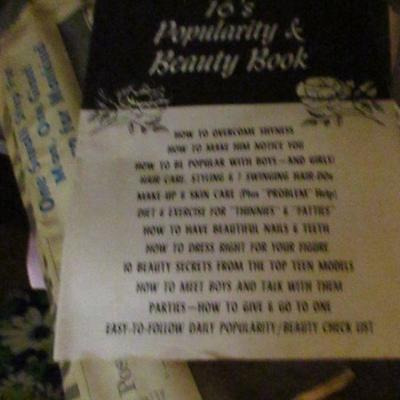 16's
Popularity &
Beauty Book
HOW TO OVERCOME SHYNESS
HOW TO MAKE HIM NOTICE YOU
HOW TO BE POPULAR WITH BOYS—AND GIRLS!
HAIR CARE, STYLING & 7 SWINGING HAIR-DOs
MAKE-UP & SKIN CARE (Plus "PROBLEM" Help)
DIET & EXERCISE FOR "THINNIES" & "FATTIES"
HOW TO HAVE BEAUTIFUL NAILS & TEETH
HOW TO DRESS RIGHT FOR YOUR FIGURE
10 BEAUTY SECRETS FROM THE TOP TEEN MODELS
HOW TO MEET BOYS AND TALK WITH THEM
PARTIES—HOW TO GIVE & GO TO ONE
EASY-TO-FOLLOW DAILY POPULARITY/BEAUTY CHECK LIST
One Small Step for
Man, One Giant
for Mankind
Pos